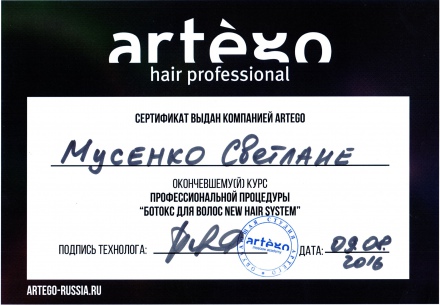 artègo
hair professional
СЕРТИФИКАТ ВЫДАН КОМПАНИЕЙ ARTEGO
Мусенко Светлане
ОКОНЧИВШЕМУ(Й) КУРС
ПРОФЕССИОНАЛЬНОЙ ПРОЦЕДУРЫ
“БОТОКС ДЛЯ ВОЛОС NEW HAIR SYSTEM”
ПОДПИСЬ ТЕХНОЛОГА: artègo ДАТА: 09.08.
2016
ARTEGO-RUSSIA.RU